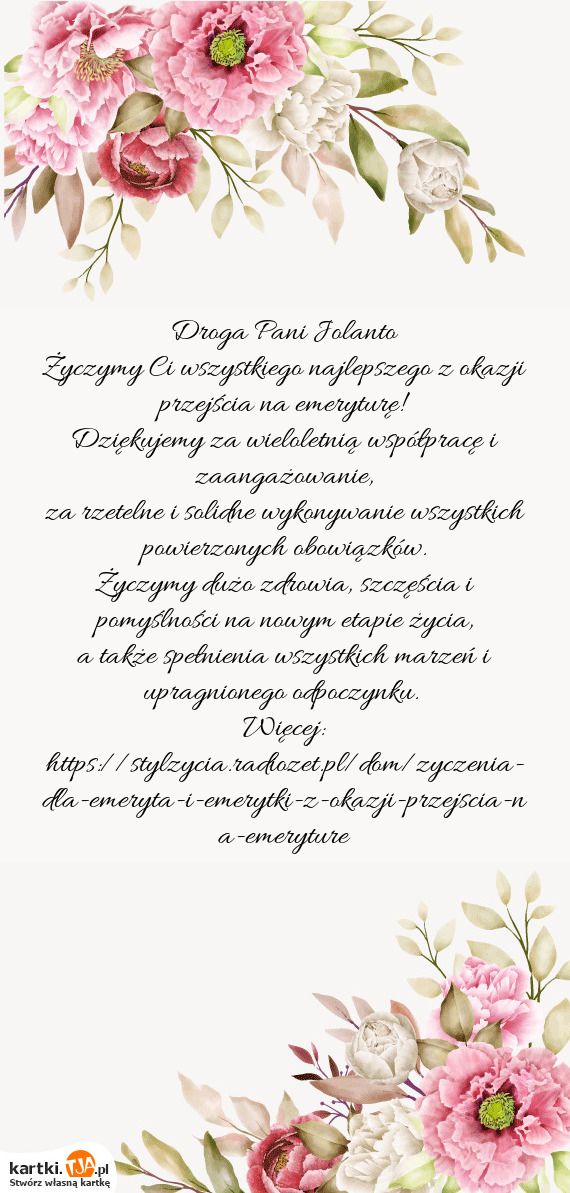 Droga Pani Jolanto
Życzymy Ci wszystkiego najlepszego z okazji
przejścia na emeryturę!
Dziękujemy za wieloletnią współpracę i
zaangażowanie,
za rzetelne i solidne wykonywanie wszystkich
powierzonych obowiązków.
Życzymy dużo zdrowia, szczęścia i
pomyślności na nowym etapie życia,
a także spełnienia wszystkich marzeń i
upragnionego odpoczynku.
Więcej:
https://stylzycia.radiozet.pl/dom/zyczenia-
dla-emeryta-i-emerytki-z-okazji-przejscia-n
a-emeryture
kartki.TJA.pl
Stwórz własną kartkę